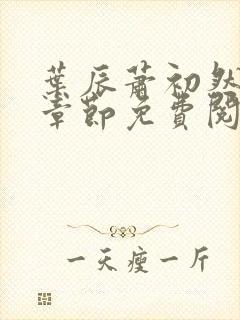 葉辰蕭初然
章節免費閱
一天瘦一斤